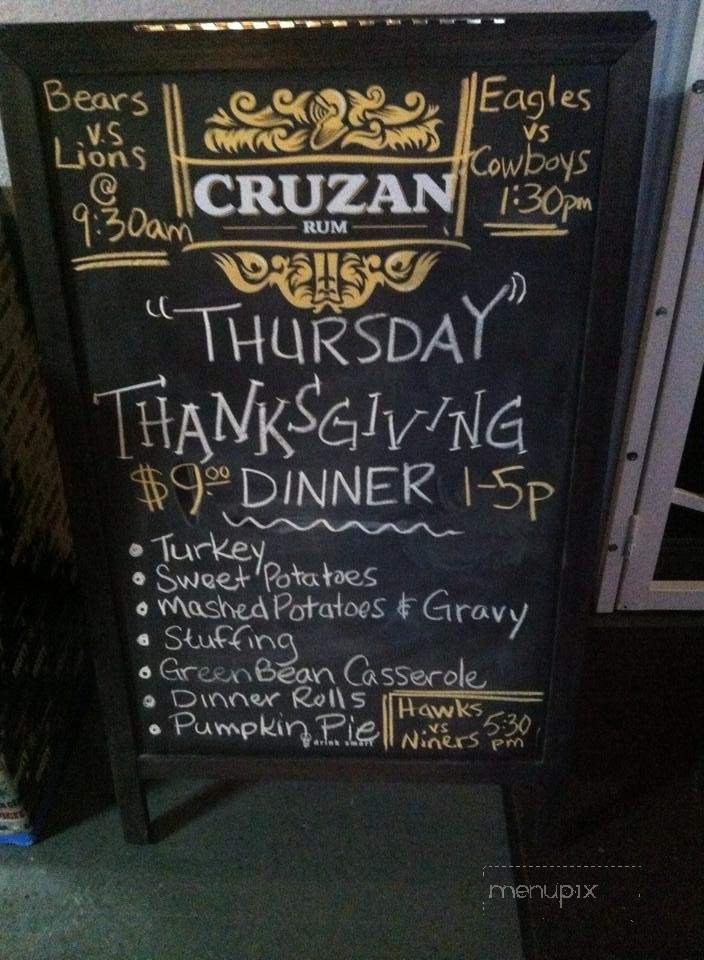 Bears
v.s
Lions
@
9:30am
CRUZAN
RUM
Eagles
vs
Cowboys
1:30pm
"THURSDAY"
THANKSGIVING
$9.00 DINNER 1-5p
• Turkey
• Sweet Potatoes
• Mashed Potatoes & Gravy
• Stuffing
• Green Bean Casserole
• Dinner Rolls
• Pumpkin Pie
drink smart
Hawks
vs
Niners
5:30
pm
menupix